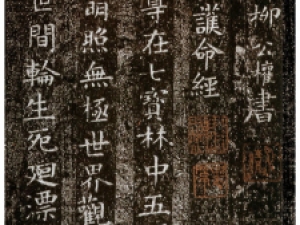 柳公權書
護命經
尊在七寶林中五
明照無極世界觀
世間輪生死廻漂